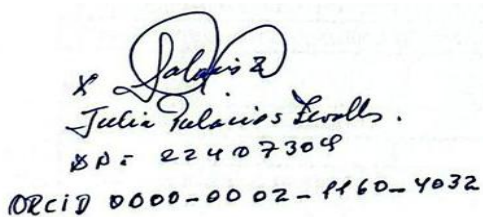 x Palacios Z
Julia Palacios Zevallos.
DNI: 22407304
ORCID 0000-0002-1160-4032